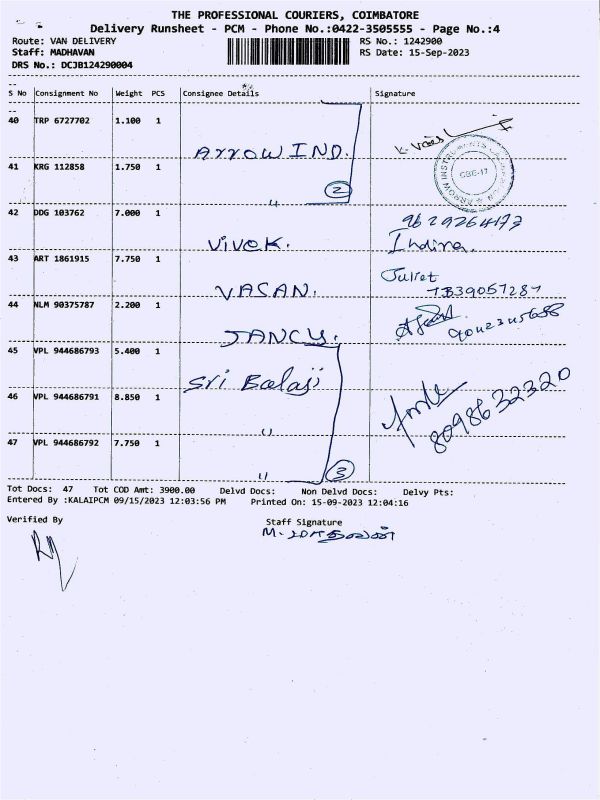 THE PROFESSIONAL COURIERS, COIMBATORE
Delivery Runsheet - PCM - Phone No.:0422-3505555 - Page No.:4
Route: VAN DELIVERY RS No.: 1242900
Staff: MADHAVAN RS Date: 15-Sep-2023
DRS No.: DCJB124290004
S No Consignment No Weight PCS Consignee Details Signature
40 TRP 6727702 1.100 1 Arrow IND.
41 KRG 112858 1.750 1 " 2
CBE-17
42 DDG 103762 7.000 1 Vivek. 9629264173
Indira
43 ART 1861915 7.750 1 VASAN. Juliet
44 NLM 90375787 2.200 1 JANCY.
45 VPL 944686793 5.400 1 Sri Balaji
46 VPL 944686791 8.850 1 " 8098632320
47 VPL 944686792 7.750 1 " 3
Tot Docs: 47 Tot COD Amt: 3900.00 Delvd Docs: Non Delvd Docs: Delvy Pts:
Entered By :KALAIPCM 09/15/2023 12:03:56 PM Printed On: 15-09-2023 12:04:16
Verified By Staff Signature
M. மாதவன்